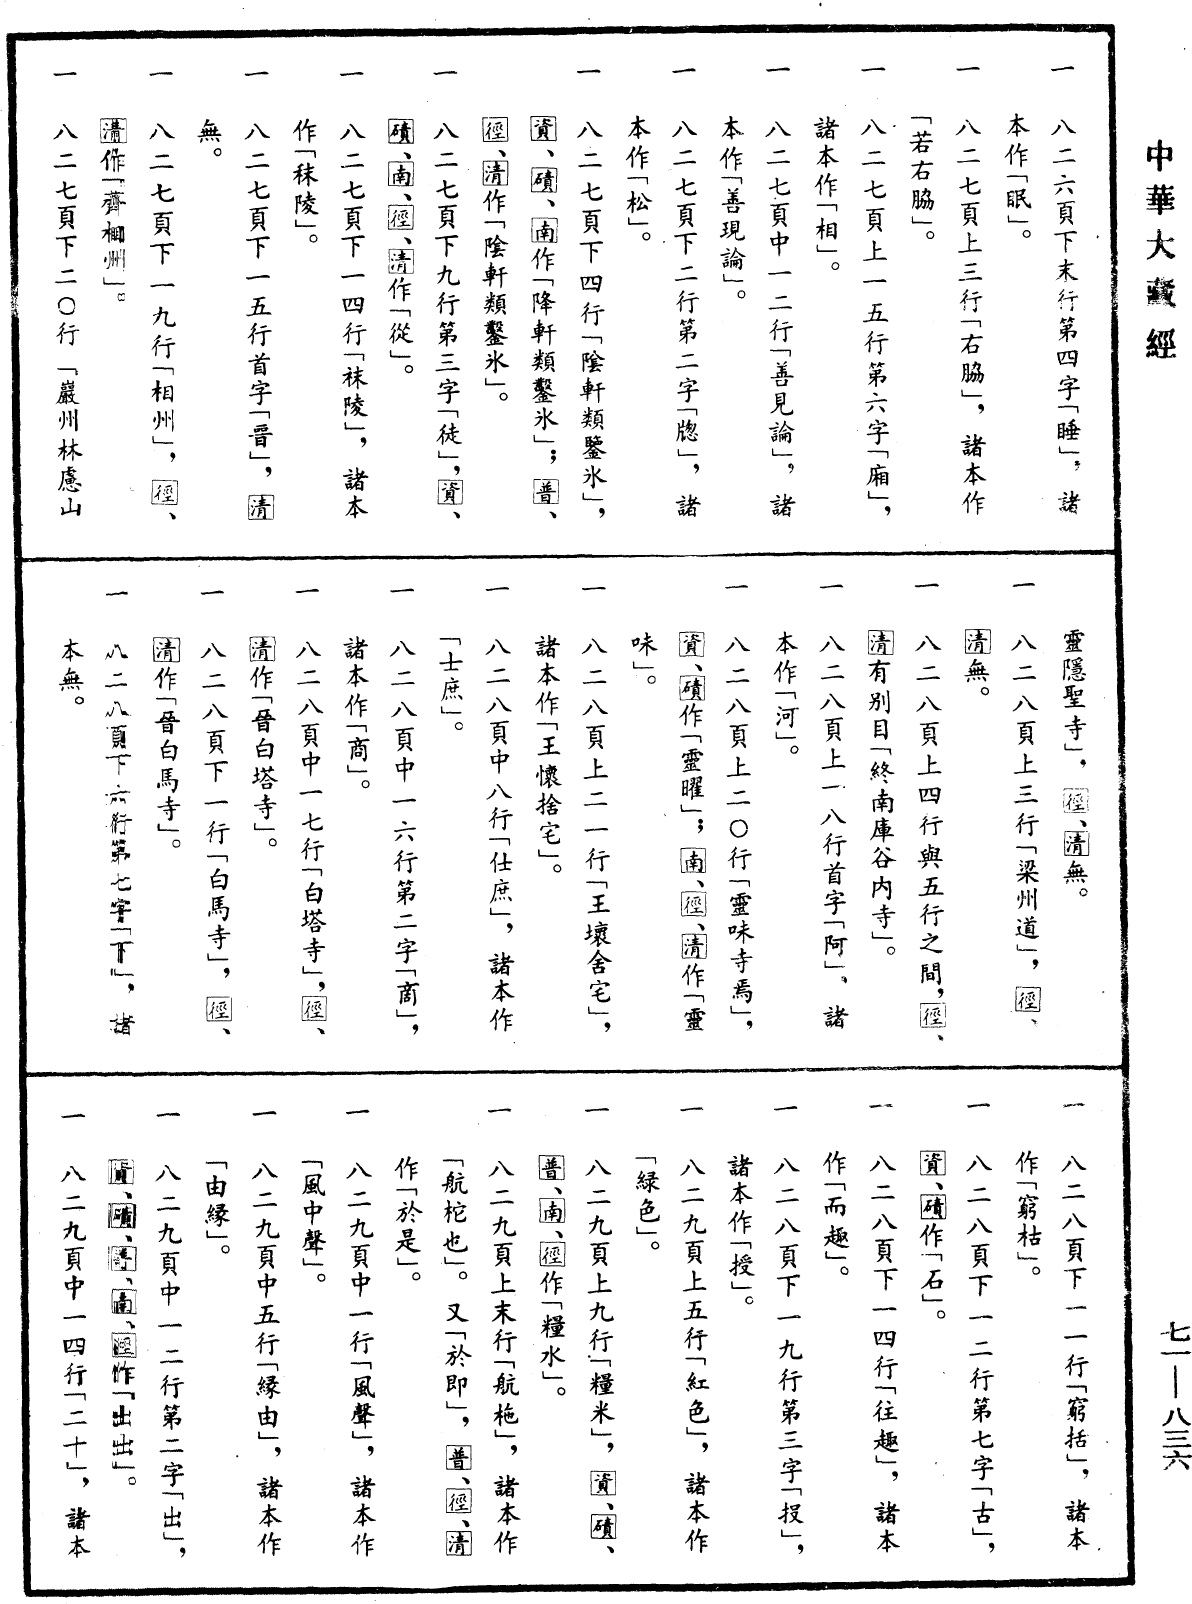 中華大藏經
一　八二六頁下末行第四字「睡」，諸
本作「眠」。
一　八二七頁上三行「右脇」，諸本作
「若右脇」。
一　八二七頁上一五行第六字「廂」，
諸本作「相」。
一　八二七頁中一二行「善見論」，諸
本作「善現論」。
一　八二七頁下二行第二字「牎」，諸
本作「松」。
一　八二七頁下四行「陰軒類鑒氷」，
資、磧、南作「降軒類鑿氷」；普、
徑、清作「陰軒類鑿氷」。
一　八二七頁下九行第三字「徒」，資、
磧、南、徑、清作「從」。
一　八二七頁下一四行「袜陵」，諸本
作「秣陵」。
一　八二七頁下一五行首字「晋」，清
無。
一　八二七頁下一九行「相州」，徑、
清作「齊相州」。
一　八二七頁下二〇行「巖州林慮山
靈隱聖寺」，徑、清無。
一　八二八頁上三行「梁州道」，徑、
清無。
一　八二八頁上四行與五行之間，徑、
清有別目「終南庫谷內寺」。
一　八二八頁上一八行首字「阿」、諸
本作「河」。
一　八二八頁上二〇行「靈味寺焉」，
資、磧作「靈曜」；南、徑、清作「靈
味」。
一　八二八頁上二一行「王壞舍宅」，
諸本作「王懷捨宅」。
一　八二八頁中八行「仕庶」，諸本作
「士庶」。
一　八二八頁中一六行第二字「啇」，
諸本作「商」。
一　八二八頁中一七行「白塔寺」，徑、
清作「晉白塔寺」。
一　八二八頁下一行「白馬寺」，徑、
清作「晉白馬寺」。
一　八二八頁下六行第七字「下」，諸
本無。
一　八二八頁下一一行「窮括」，諸本
作「窮枯」。
一　八二八頁下一二行第七字「古」，
資、磧作「石」。
一　八二八頁下一四行「往趣」，諸本
作「而趣」。
一　八二八頁下一九行第三字「投」，
諸本作「授」。
一　八二九頁上五行「紅色」，諸本作
「緑色」。
一　八二九頁上九行「糧米」，資、磧、
普、南、徑作「糧水」。
一　八二九頁上末行「航柂」，諸本作
「航柁也」。又「於即」，普、徑、清
作「於是」。
一　八二九頁中一行「風聲」，諸本作
「風中聲」。
一　八二九頁中五行「緣由」，諸本作
「由緣」。
一　八二九頁中一二行第二字「出」，
資、磧、普、南、徑作「出出」。
一　八二九頁中一四行「二十」，諸本
七一—八三六